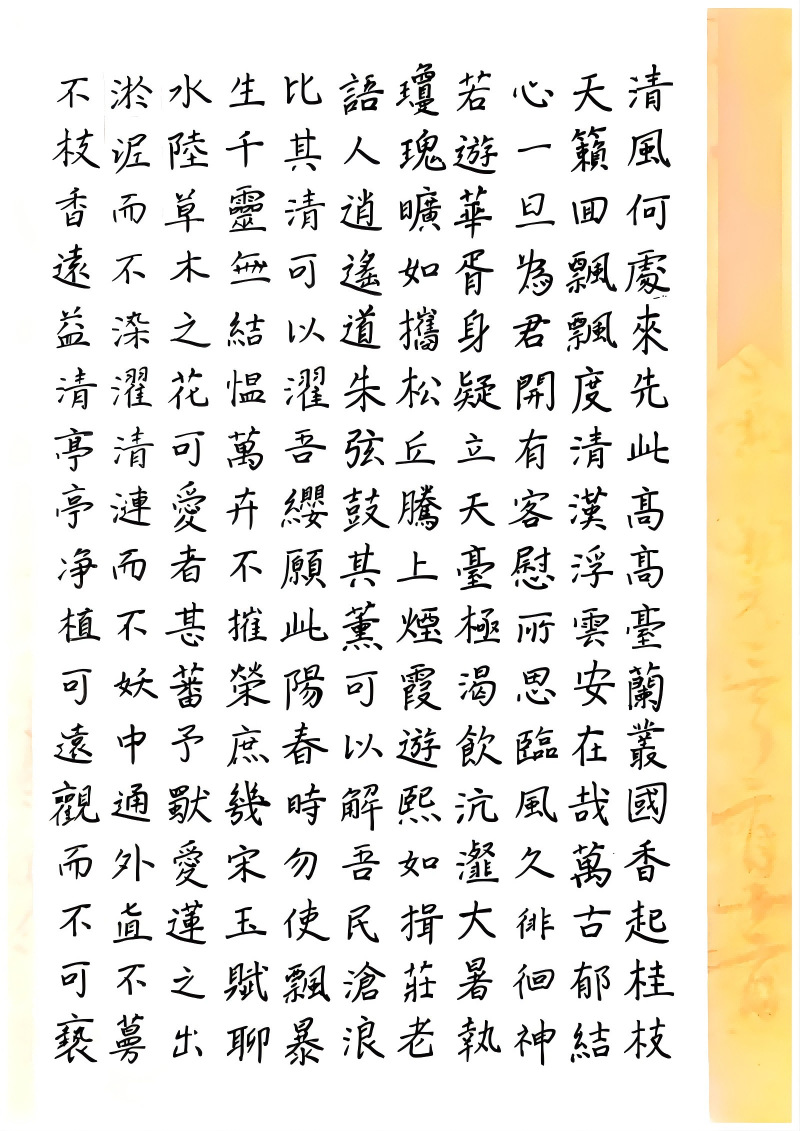 清風何處來先此高高臺蘭叢國香起桂枝
天籟回飄飄度清漢浮雲安在哉萬古郁結
心一旦為君開有客慰所思臨風久徘徊神
若遊華胥身疑立天臺極渴飲沆瀣大暑執
瓊瑰曠如攜松丘騰上煙霞遊熙如揖莊老
語人逍遙道朱弦鼓其薰可以解吾民滄浪
比其清可以濯吾纓願此陽春時勿使飄暴
生千靈無結慍萬卉不摧榮庶幾宋玉賦聊
水陸草木之花可愛者甚蕃予獸愛蓮之出
淤泥而不染濯清漣而不妖中通外直不蔓
不枝香遠益清亭亭净植可遠觀而不可褻